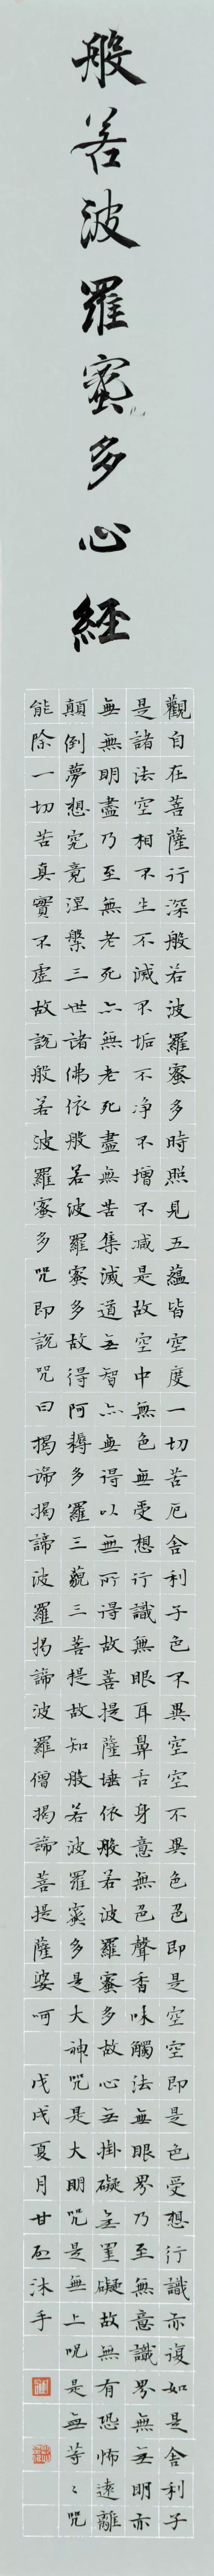 般若波羅蜜多心經
觀自在菩薩行深般若波羅蜜多時照見五蘊皆空度一切苦厄舍利子色不異空空不異色色即是空空即是色受想行識亦復如是舍利子
是諸法空相不生不滅不垢不净不增不减是故空中無色無受想行識無眼耳鼻舌身意無色聲香味觸法無眼界乃至無意識界無无明亦
無無明盡乃至無老死亦無老死盡無苦集滅道无智亦無得以無所得故菩提薩埵依般若波羅蜜多故心无掛礙無罣礙故無有恐怖遠離
顛倒夢想究竟涅槃三世諸佛依般若波羅蜜多故得阿耨多羅三藐三菩提故知般若波羅蜜多是大神咒是大明咒是無上咒是無等〻咒
能除一切苦真實不虛故說般若波羅蜜多咒即說咒曰揭諦揭諦波羅揭諦波羅僧揭諦菩提薩婆呵 戊戌夏月甘石沐手